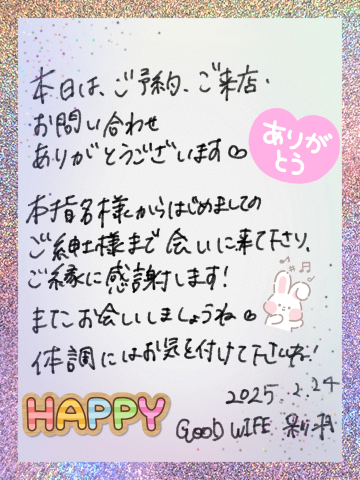 本日は、ご予約、ご来店、
お問い合わせ
ありがとうございます∞
ありが
とう
本指名様からはじめましての
ご紳士様まで会いに来て下さり、
ご縁に感謝します！
またお会いしましょうね
体調にはお気を付けて下さいね！
2025.2.24
HAPPY
GOOD WIFE